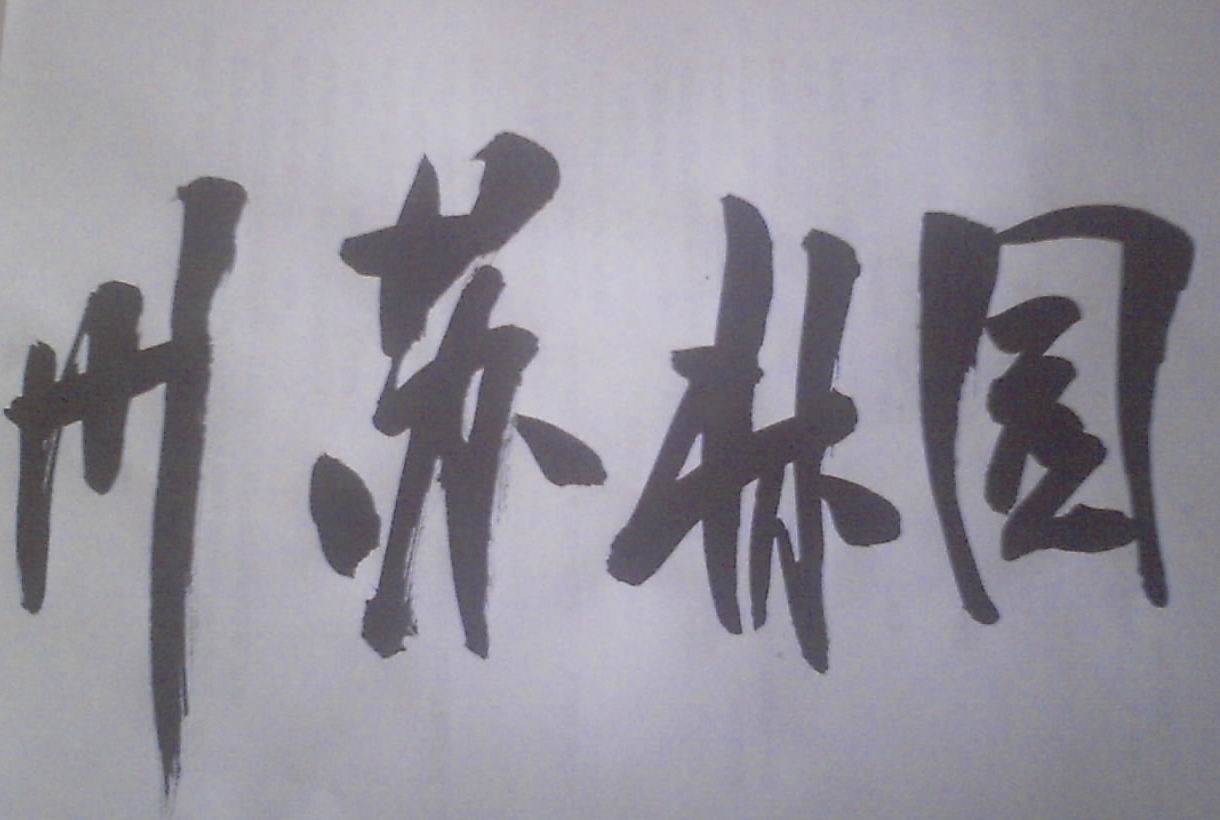 园林苏州